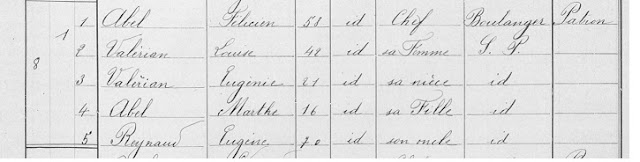 1 Abel Félicien 58 id Chef Boulanger Patron
8 1 2 Valérian Louise 42 id sa Femme S. P.
3 Valérian Eugénie 21 id sa nièce id
4 Abel Marthe 16 id sa Fille id
5 Reynaud Eugène 70 id son oncle id